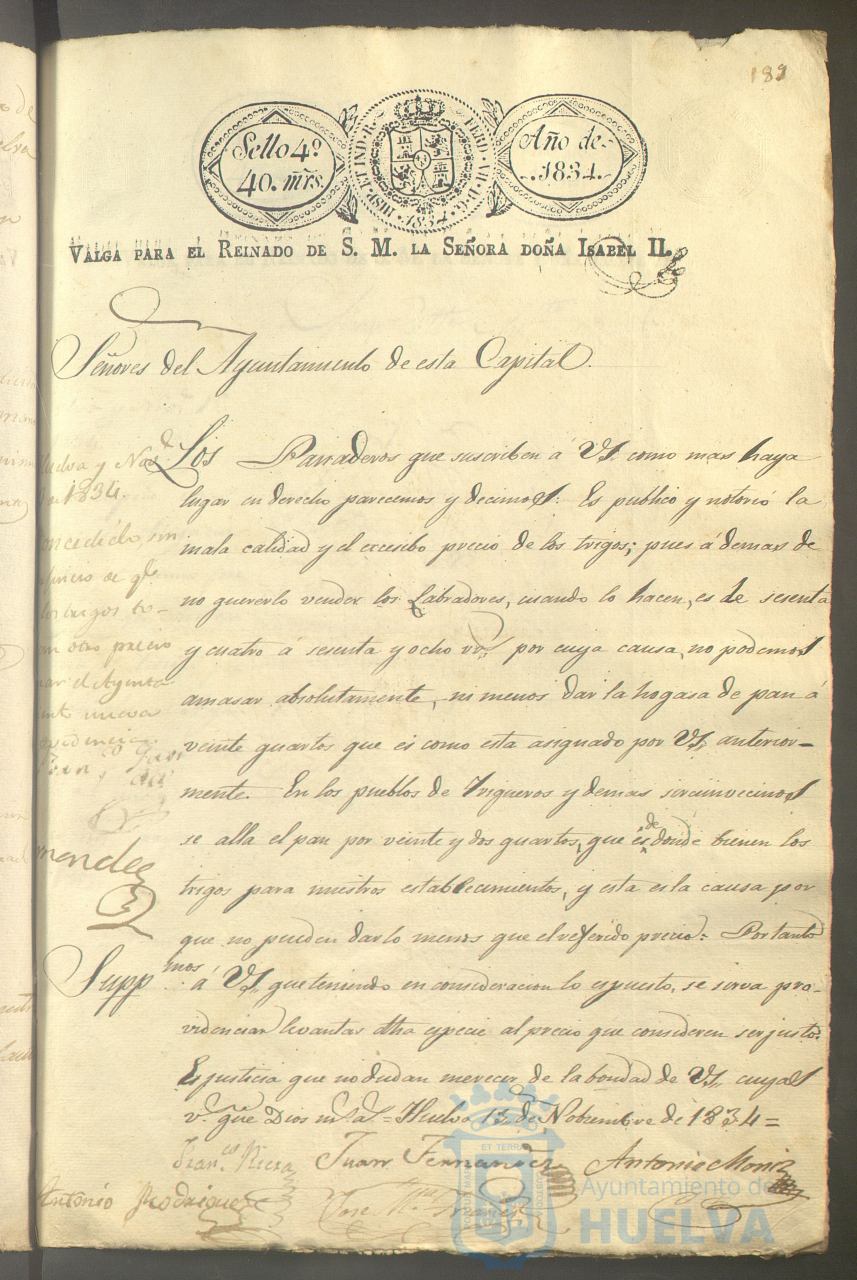 189
Sello 4º
40. mrs.
HISP. ET IND. R. FERD. VII. D. G.
1834
Año de
1834.
VALGA PARA EL REINADO DE S. M. LA SEÑORA DOÑA ISABEL II.
Señores del Ayuntamiento de esta Capital.
Los Panaderos que suscriben á VS. como mas haya
lugar en derecho parecemos y decimos: Es publico y notorio la
mala calidad y el excesibo precio de los trigos; pues á demas de
no quererlo vender los Labradores, cuando lo hacen, es de sesenta
y cuatro á sesenta y ocho rs. por cuya causa, no podemos
amasar absolutamente, ni menos dar la hogasa de pan á
veinte quartos que es como esta asignado por VS. anterior-
mente. En los pueblos de Trigueros y demas sircunvecinos
se alla el pan por veinte y dos quartos, que es de donde bienen los
trigos para nuestros establecimientos, y esta es la causa por
que no pueden darlo menos que el referido precio: Por tanto
Suppmos. á VS. que teniendo en consideracion lo espuesto, se sirva pro-
videnciar levantar dha especie al precio que consideren ser justo.
Es justicia que no dudan merecer de la bondad de VS. cuya
v. gue Dios ms. as. Huelva 13 de Nobiembre de 1834 =
Franco. Riera Juan Fernandez Antonio Moniz
Antonio Rodriguez Jose Ma.
Huelva y Nov
de 1834.
Concedido, sin
perjuicio de qe.
los trigos to-
man otro precio
el Ayunta
nueva
providencia
Ayuntamiento de
HUELVA